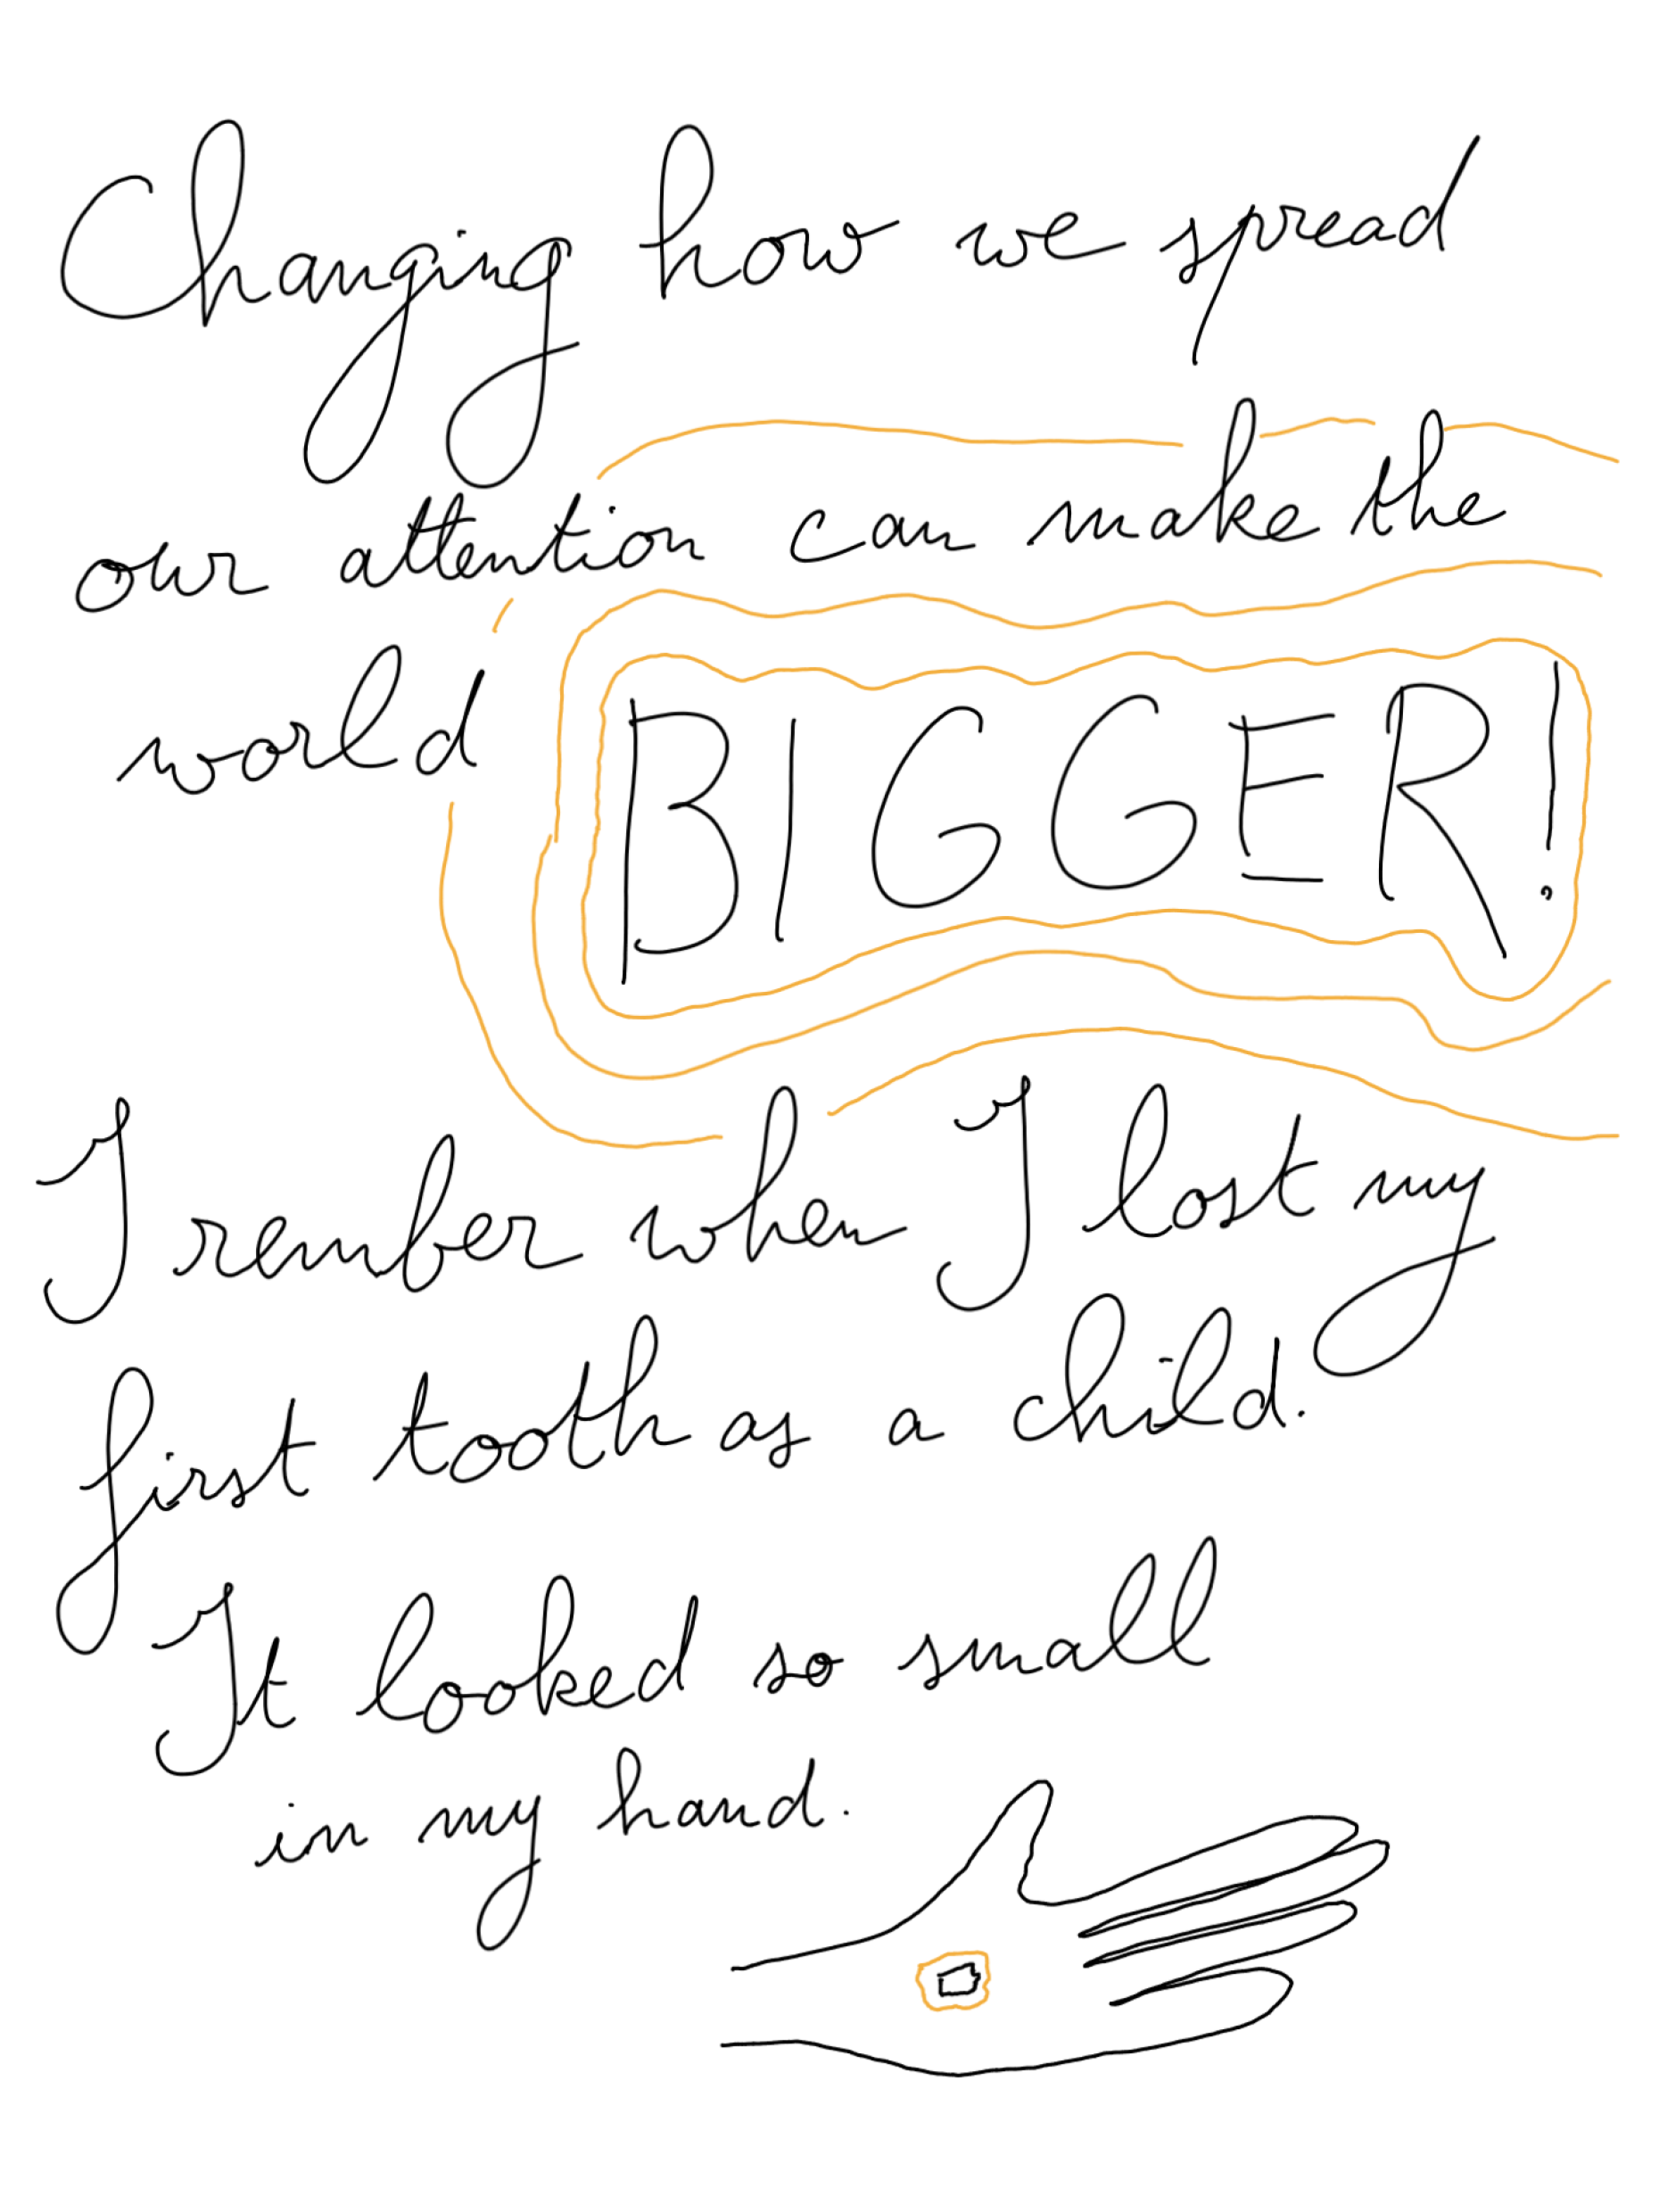 Changing how we spread
our attention can make the
world BIGGER!
I rember when I lost my
first tooth as a child.
It looked so small
in my hand.